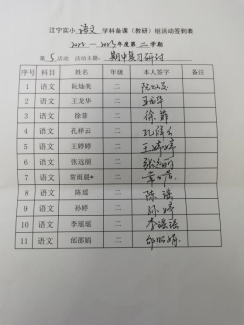 江宁实小 语文 学科备课（教研）组活动签到表
2022—2023年度第二学期
第 5 次活动 活动主题： 期中复习研讨
序号 科目 姓名 年级 本人签字 备注
1 语文 阮灿美 二
2 语文 王龙华 二 王龙华
3 语文 徐菲 二 徐菲
4 语文 孔祥云 二 孔祥云
5 语文 王婷婷 二 王婷婷
6 语文 张远丽 二 张远丽
7 语文 常雨晨 二
8 语文 陈瑶 二 陈瑶
9 语文 孙婷 二 孙婷
10 语文 李瑶瑶 二 李瑶瑶
11 语文 邰邵娟 二